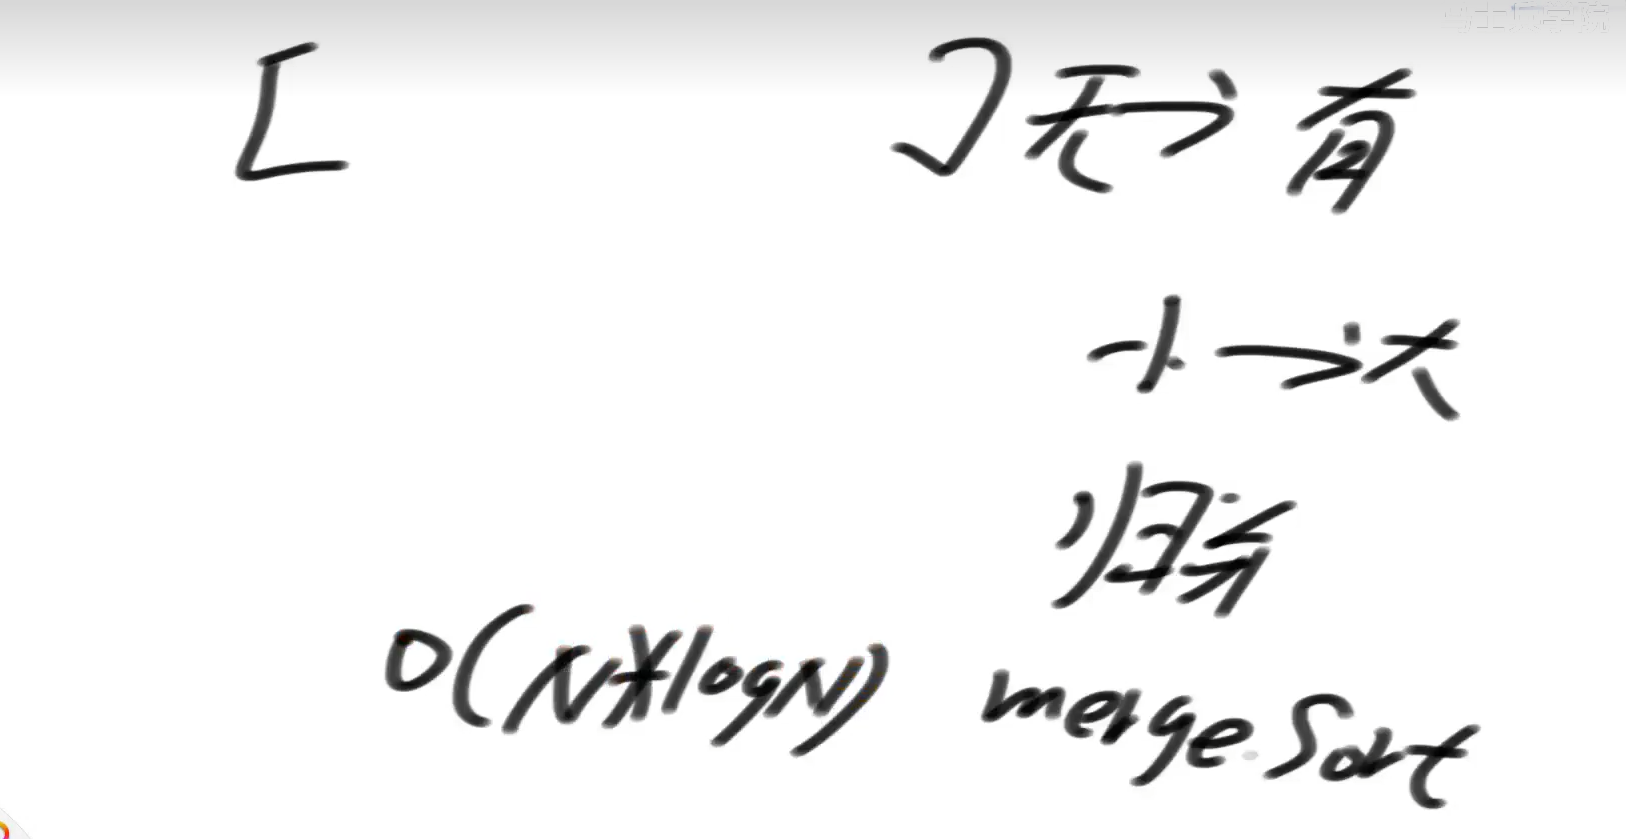 马士兵学院
[ ] 无→有
小→大
归并
O(N*logN) merge Sort